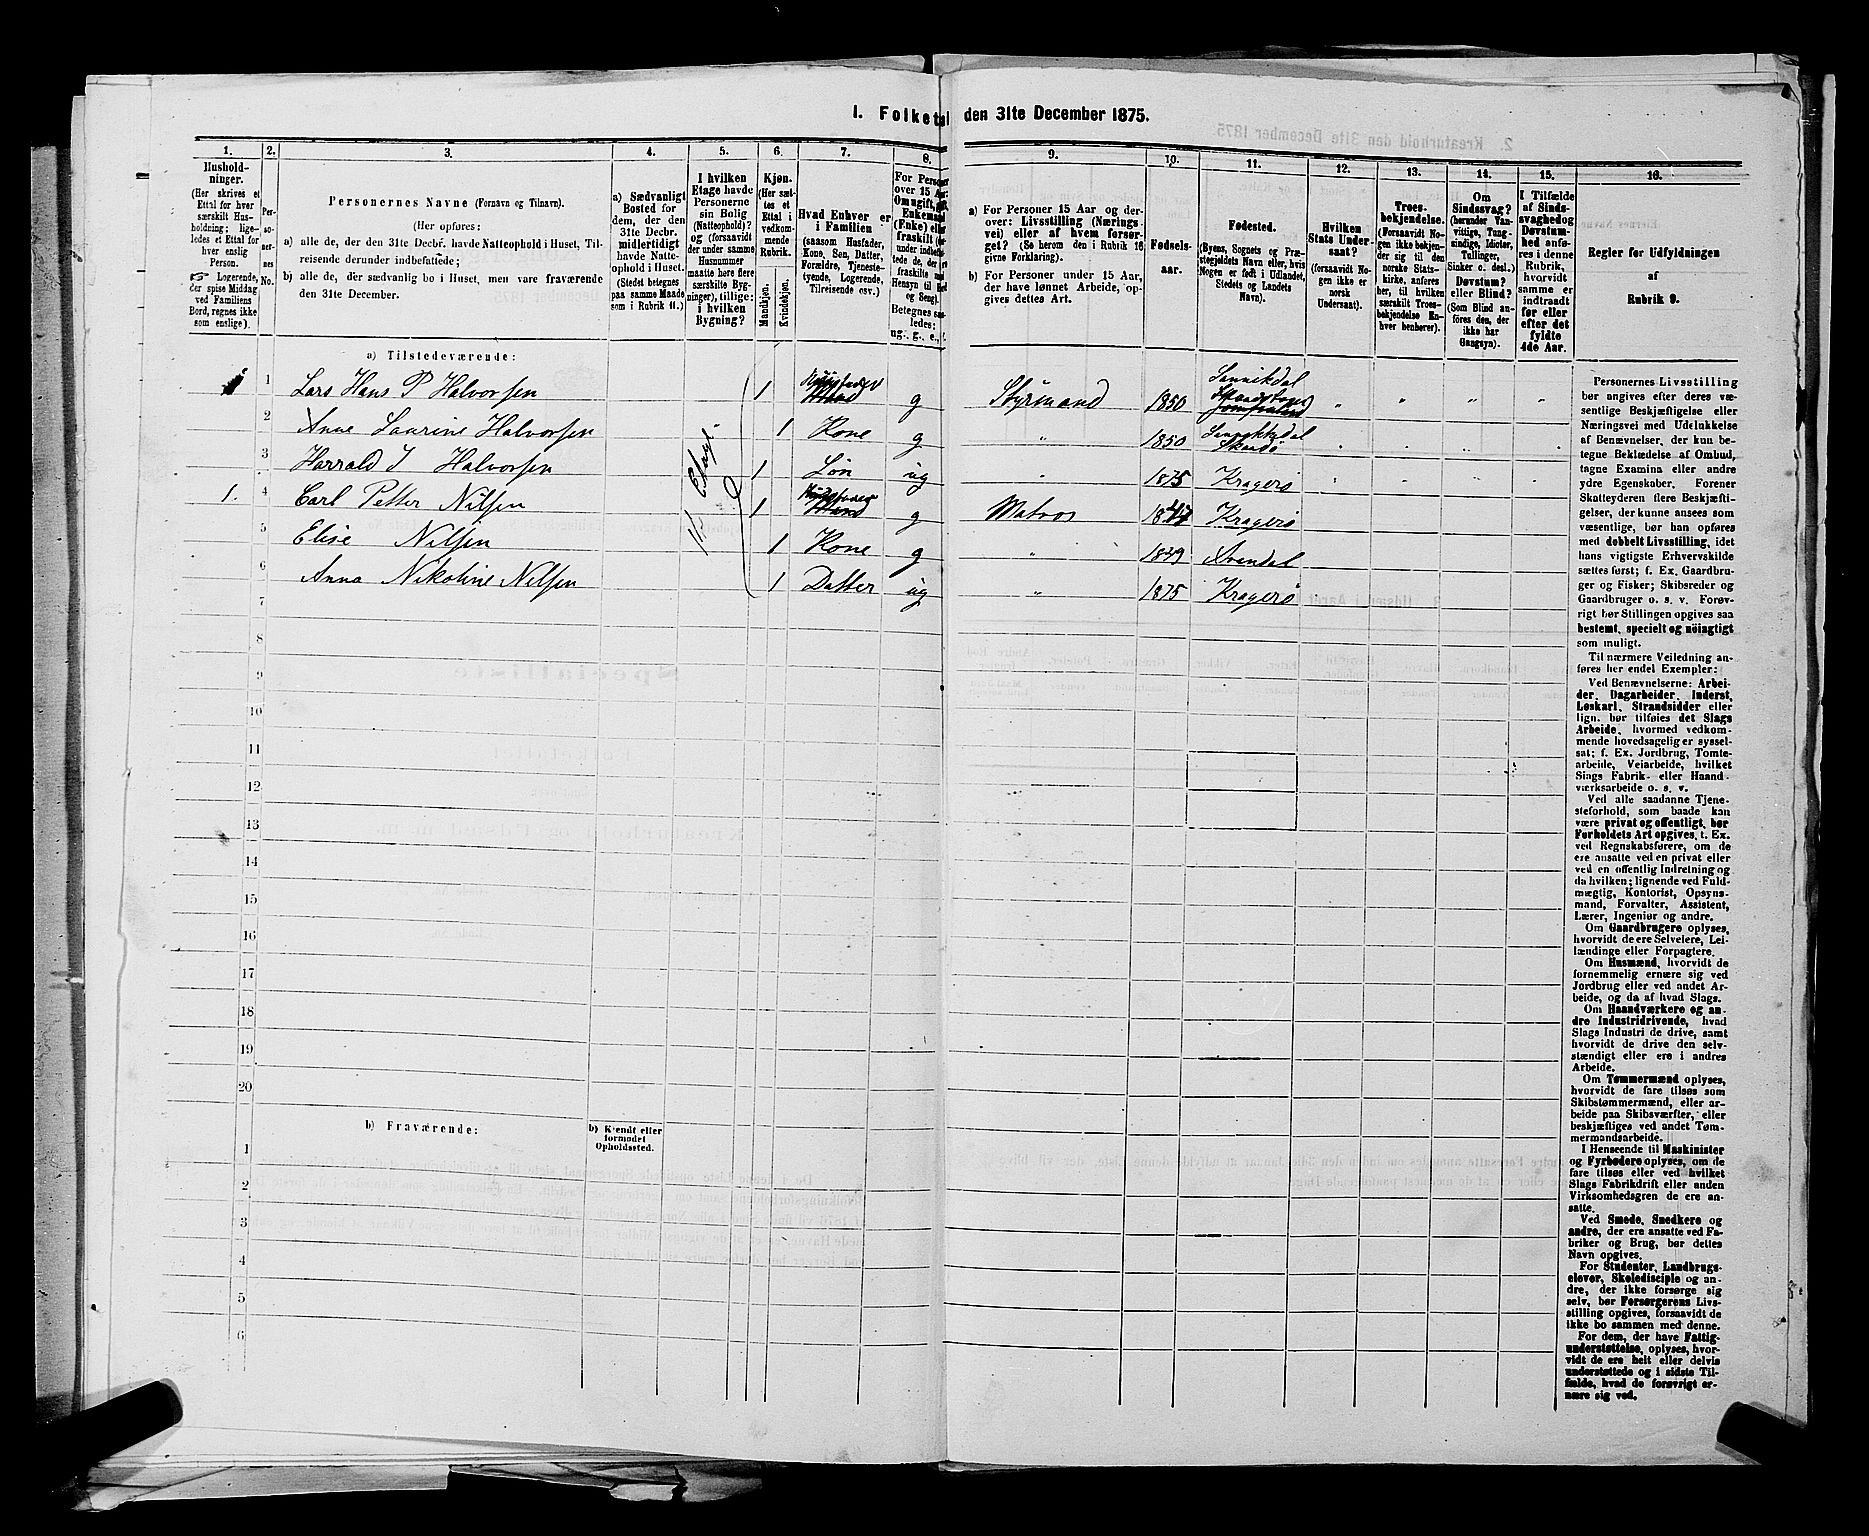 1. Folketal den 31te December 1875.
1.
Hushold-
ninger.
(Her skrives et
Ettal for hver
særskilt Hus-
holdning; lige-
ledes et Ettal for
hver enslig
Person.
☞ Logerende,
der spise Middag
ved Familiens
Bord, regnes ikke
som enslige).
2.
Per-
so-
ner-
nes
No.
3.
Personernes Navne (Fornavn og Tilnavn).
(Her opføres:
a) alle de, der den 31te Decbr. havde Natteophold i Huset, Til-
reisende derunder indbefattede;
b) alle de, der sædvanlig bo i Huset, men vare fraværende
den 31te December.
4.
a) Sædvanligt
Bosted for
dem, der den
31te Decbr.
midlertidigt
havde Natte-
ophold i Huset.
(Stedet betegnes
paa samme Maade
som i Rubrik 11.)
5.
I hvilken
Etage havde
Personerne
sin Bolig
(Natteophold)?
og (forsaavidt
der under samme
Husnummer
maatte høre flere
særskilte Byg-
ninger), tillige:
i hvilken
Bygning?
6.
Kjøn.
(Her sæt-
tes et
Ettal i
vedkom-
mende
Rubrik.
Mandkjøn.
Kvindekjøn.
7.
Hvad Enhver er
i Familien
(saasom Husfader,
Kone, Søn, Datter,
Forældre, Tjeneste-
tyende, Logerende,
Tilreisende osv.)
8.
For Person
over 15 Aar
Om ugift, gift,
Enkemand
(Enke) eller
fraskilt
9.
a) For Personer 15 Aar og der-
over: Livsstilling (Nærings-
vei) eller af hvem forsør-
get? (Se herom den i Rubrik 16
givne Forklaring).
b) For Personer under 15 Aar,
der have lønnet Arbeide, op-
gives dettes Art.
10.
Fødsels-
aar.
11.
Fødested.
(Byens, Sognets og Præ-
stegjeldets Navn eller, hvis
Nogen er født i Udlandet,
Stedets og Landets
Navn).
12.
Hvilken
Stats Under-
saat?
(forsaavidt No-
gen ikke er
norsk
Undersaat).
13.
Troes-
bekjendelse.
(Forsaavidt No-
gen ikke bekjen-
der sig til den
norske Stats-
kirke, anføres
her, til hvilken
særskilt Troes-
bekjendelse En-
hver henhører).
14.
Om
Sindssvag?
(herunder Van-
vittige, Tung-
sindige, Idioter,
Tullinger,
Sinker o. desl.)
Døvstum?
eller Blind?
(Som Blind an-
føres den, der
ikke har
Gangsyn).
15.
I Tilfælde
af Sinds-
svaghed og
Døvstum-
hed anfø-
res i denne
Rubrik,
hvorvidt
samme er
indtraadt
før eller
efter det
fyldte
4de Aar.
16.
Regler for Udfyldningen
af
Rubrik 9.
a) Tilstedeværende:
1 Lars Hans P Halvorsen 1 Husfader g Styrmand 1850 Sannikdal
2 Anne Laurine Halvorsen 1 Kone g " 1850 Sannikkedal
3 Harrald J Halvorsen 1 Søn ug " 1875 Kragerö
1. 4 Carl Petter Nilsen 1 Husfader g Matros Kragerö
5 Elise Nilsen 1 Kone g " 1849 Arendal
6 Anna Nikoline Nilsen 1 Datter ug " 1875 Kragerö
7
8
9
10
11
12
13
14
15
16
17
18
19
20
b) Fraværende:
b) Kjendt eller
formodet
Opholdssted.
1
2
3
4
5
6
Personernes Livsstilling
bør angives efter deres væ-
sentlige Beskjæftigelse eller
Næringsvei med Udelukkelse
af Benævnelser, der kun be-
tegne Beklædelse af Ombud,
tagne Examina eller andre
ydre Egenskaber. Forener
Skatteyderen flere Beskjæfti-
gelser, der kunne ansees som
væsentlige, bør han opføres
med dobbelt Livsstilling, idet
hans vigtigste Erhvervskilde
sættes først; f. Ex. Gaardbru-
ger og Fisker; Skibsreder og
Gaardbruger o. s. v. Forøv-
rigt bør Stillingen opgives saa
bestemt, specielt og nöiagtigt
som muligt.
Til nærmere Veiledning an-
føres her endel Exempler:
Ved Benævnelserne: Arbei-
der, Dagarbeider, Inderst,
Løskarl, Strandsidder eller
lign. bør tilføies det Slags
Arbeide, hvormed vedkom-
mende hovedsagelig er syssel-
sat; f. Ex. Jordbrug, Tomte-
arbeide, Veiarbeide, hvilket
Slags Fabrik- eller Haand-
værksarbeide o. s. v.
Ved alle saadanne Tjene-
steforhold, som baade kan
være privat og offentligt, bør
Forholdets Art opgives, t. Ex.
ved Regnskabsførere, om de
ere ansatte ved en privat eller
ved en offentlig Indretning og
da hvilken; lignende ved Fuld-
mægtig, Kontorist, Opsyns-
mand, Forvalter, Assistent,
Lærer, Ingeniør og andre.
Om Gaardbrugere oplyses,
hvorvidt de ere Selveiere, Lei-
lændinge eller Forpagtere.
Om Husmænd, hvorvidt de
fornemmelig ernære sig ved
Jordbrug eller ved andet Ar-
beide, og da af hvad Slags.
Om Haandværkere og an-
dre Industridrivende, hvad
Slags Industri de drive, samt
hvorvidt de drive den selv-
stændigt eller ere i andres
Arbeide.
Om Tømmermænd oplyses,
hvorvidt de fare tilsøs som
Skibstømmermænd, eller ar-
beide paa Skibsværfter, eller
beskjæftiges ved andet Tøm-
mermandsarbeide.
I Henseende til Maskinister
og Fyrbødere oplyses, om de
fare tilsøs eller ved hvilket
Slags Fabrikdrift eller anden
Virksomhedsgren de ere an-
satte.
Ved Smede, Snedkere og
andre, der ere ansatte ved Fa-
briker og Brug, bør dettes
Navn opgives.
For Studenter, Landbrugs-
elever, Skoledisciple og an-
dre, der ikke forsørge sig
selv, bør Forsørgerens Livs-
stilling opgives, forsaavidt de
ikke bo sammen med denne.
For dem, der have Fattig-
understøttelse, oplyses, hvor-
vidt de ere helt eller delvis
understøttede og i sidste Til-
fælde, hvad de forøvrigt er-
nære sig ved.